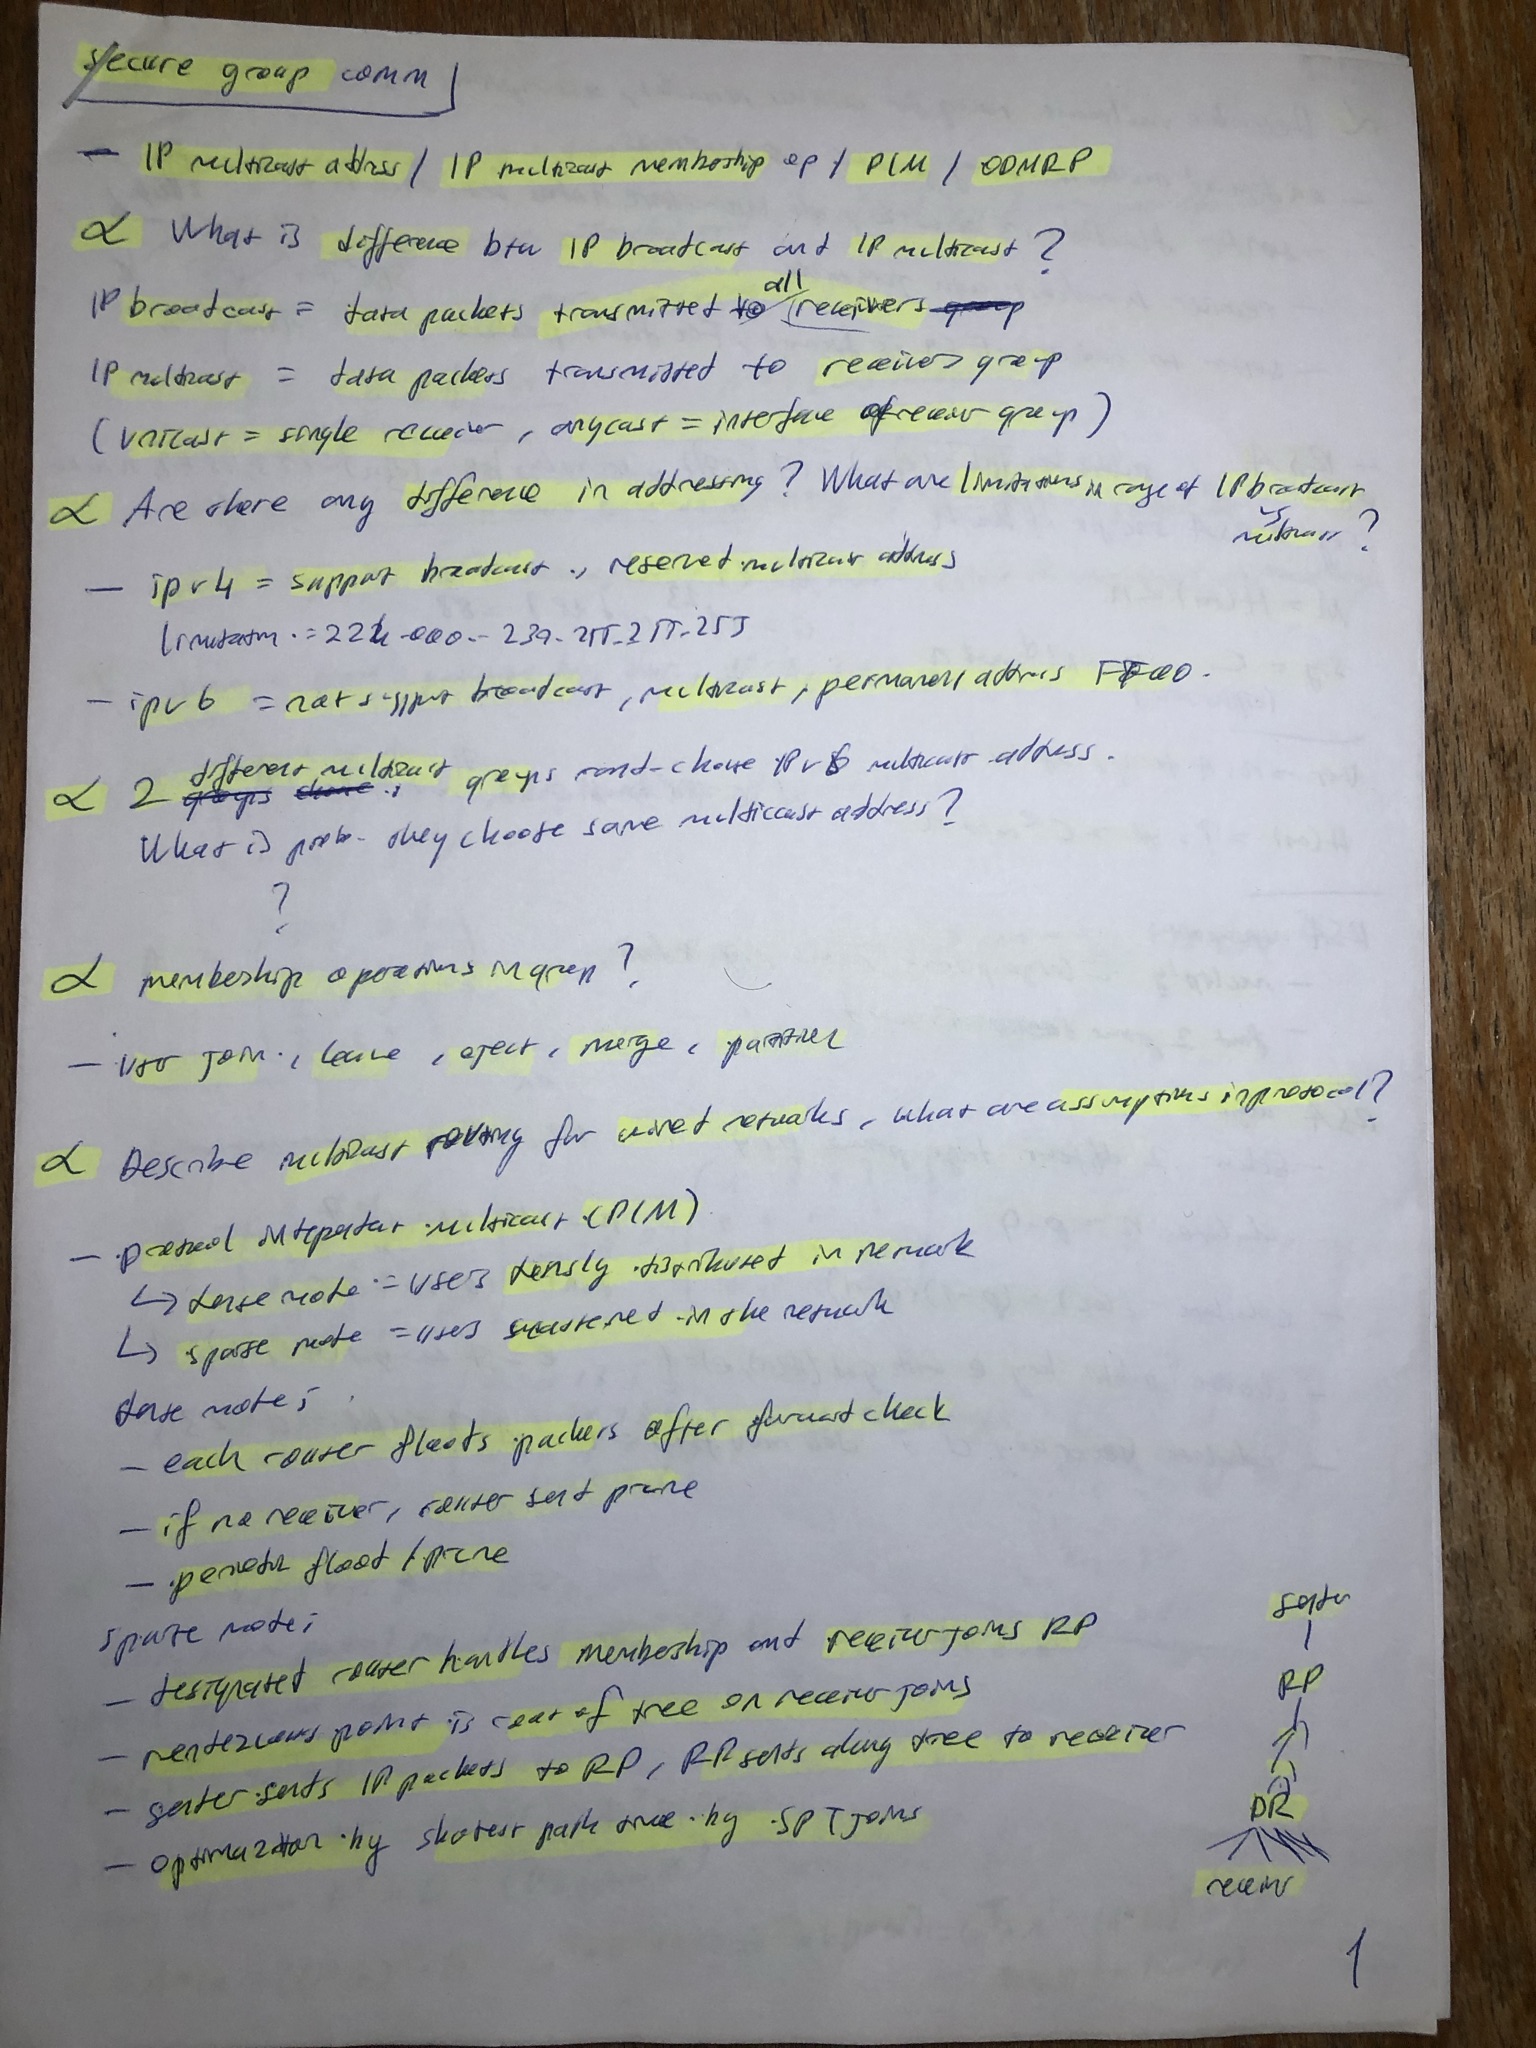 Secure group comm
- IP multicast address / IP multicast membership op / PIM / ODMRP
α What is difference btw IP broadcast and IP multicast?
IP broadcast = data packets transmitted to all receivers
IP multicast = data packets transmitted to receivers group
(unicast = single receiver, anycast = interface of receiver group)
α Are there any difference in addressing? What are limitations in range of IP broadcast
vs
multicast ?
- ipv4 = support broadcast, reserved multicast address
limitatn = 224.000.- 239.255.255.255
- ipv6 = not support broadcast, multicast, permanent address FF00.
α 2 different multicast groups rand-choose IPv6 multicast address.
What is prob. they choose same multiccast address?
?
α membership operations in group?
- user join, leave, eject, merge, partition
α Describe multicast routing for wired networks, what are assumptions in protocol?
- protocol independent multicast (PIM)
↳ dense mode = users densly distributed in network
↳ sparse mode = users scattered in the network
dense mode;
- each router floods packets after forward check
- if no receiver, router send prune
- periodic flood / prune
sparse mode;
- designated router handles membership and receiver joins RP
- rendezvous point is root of tree on receiver joins
- sender sends IP packets to RP, RP sends along tree to receiver
- optimization by shotest path tree by SPT joins
sender
RP
DR
receiver
1